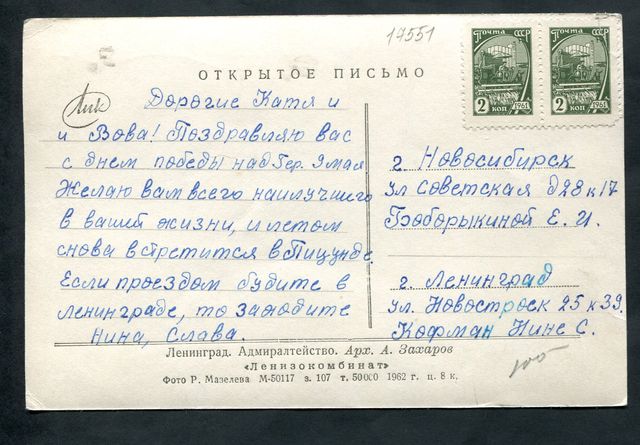 17551
Почта СССР
2 коп
1961
Почта СССР
2 коп
1961
ОТКРЫТОЕ ПИСЬМО
Лик
Дорогие Катя и
и Вова! Поздравляю вас
с днем победы над Гер. 9 мая
Желаю вам всего наилучшего
в вашей жизни, и летом
снова встретится в Пицунде.
Если проездом будите в
ленинграде, то заходите
Нина, Слава.
г. Новосибирск
ул Советская д 28 к 17
Боборыкиной Е. И.
г. Ленинград
ул. Новостроек 25 к 39.
Кофман Нине С.
Ленинград. Адмиралтейство. Арх. А. Захаров
«Ленизокомбинат»
Фото Р. Мазелева М-50117 з. 107 т. 50 000 1962 г. ц. 8 к.
100